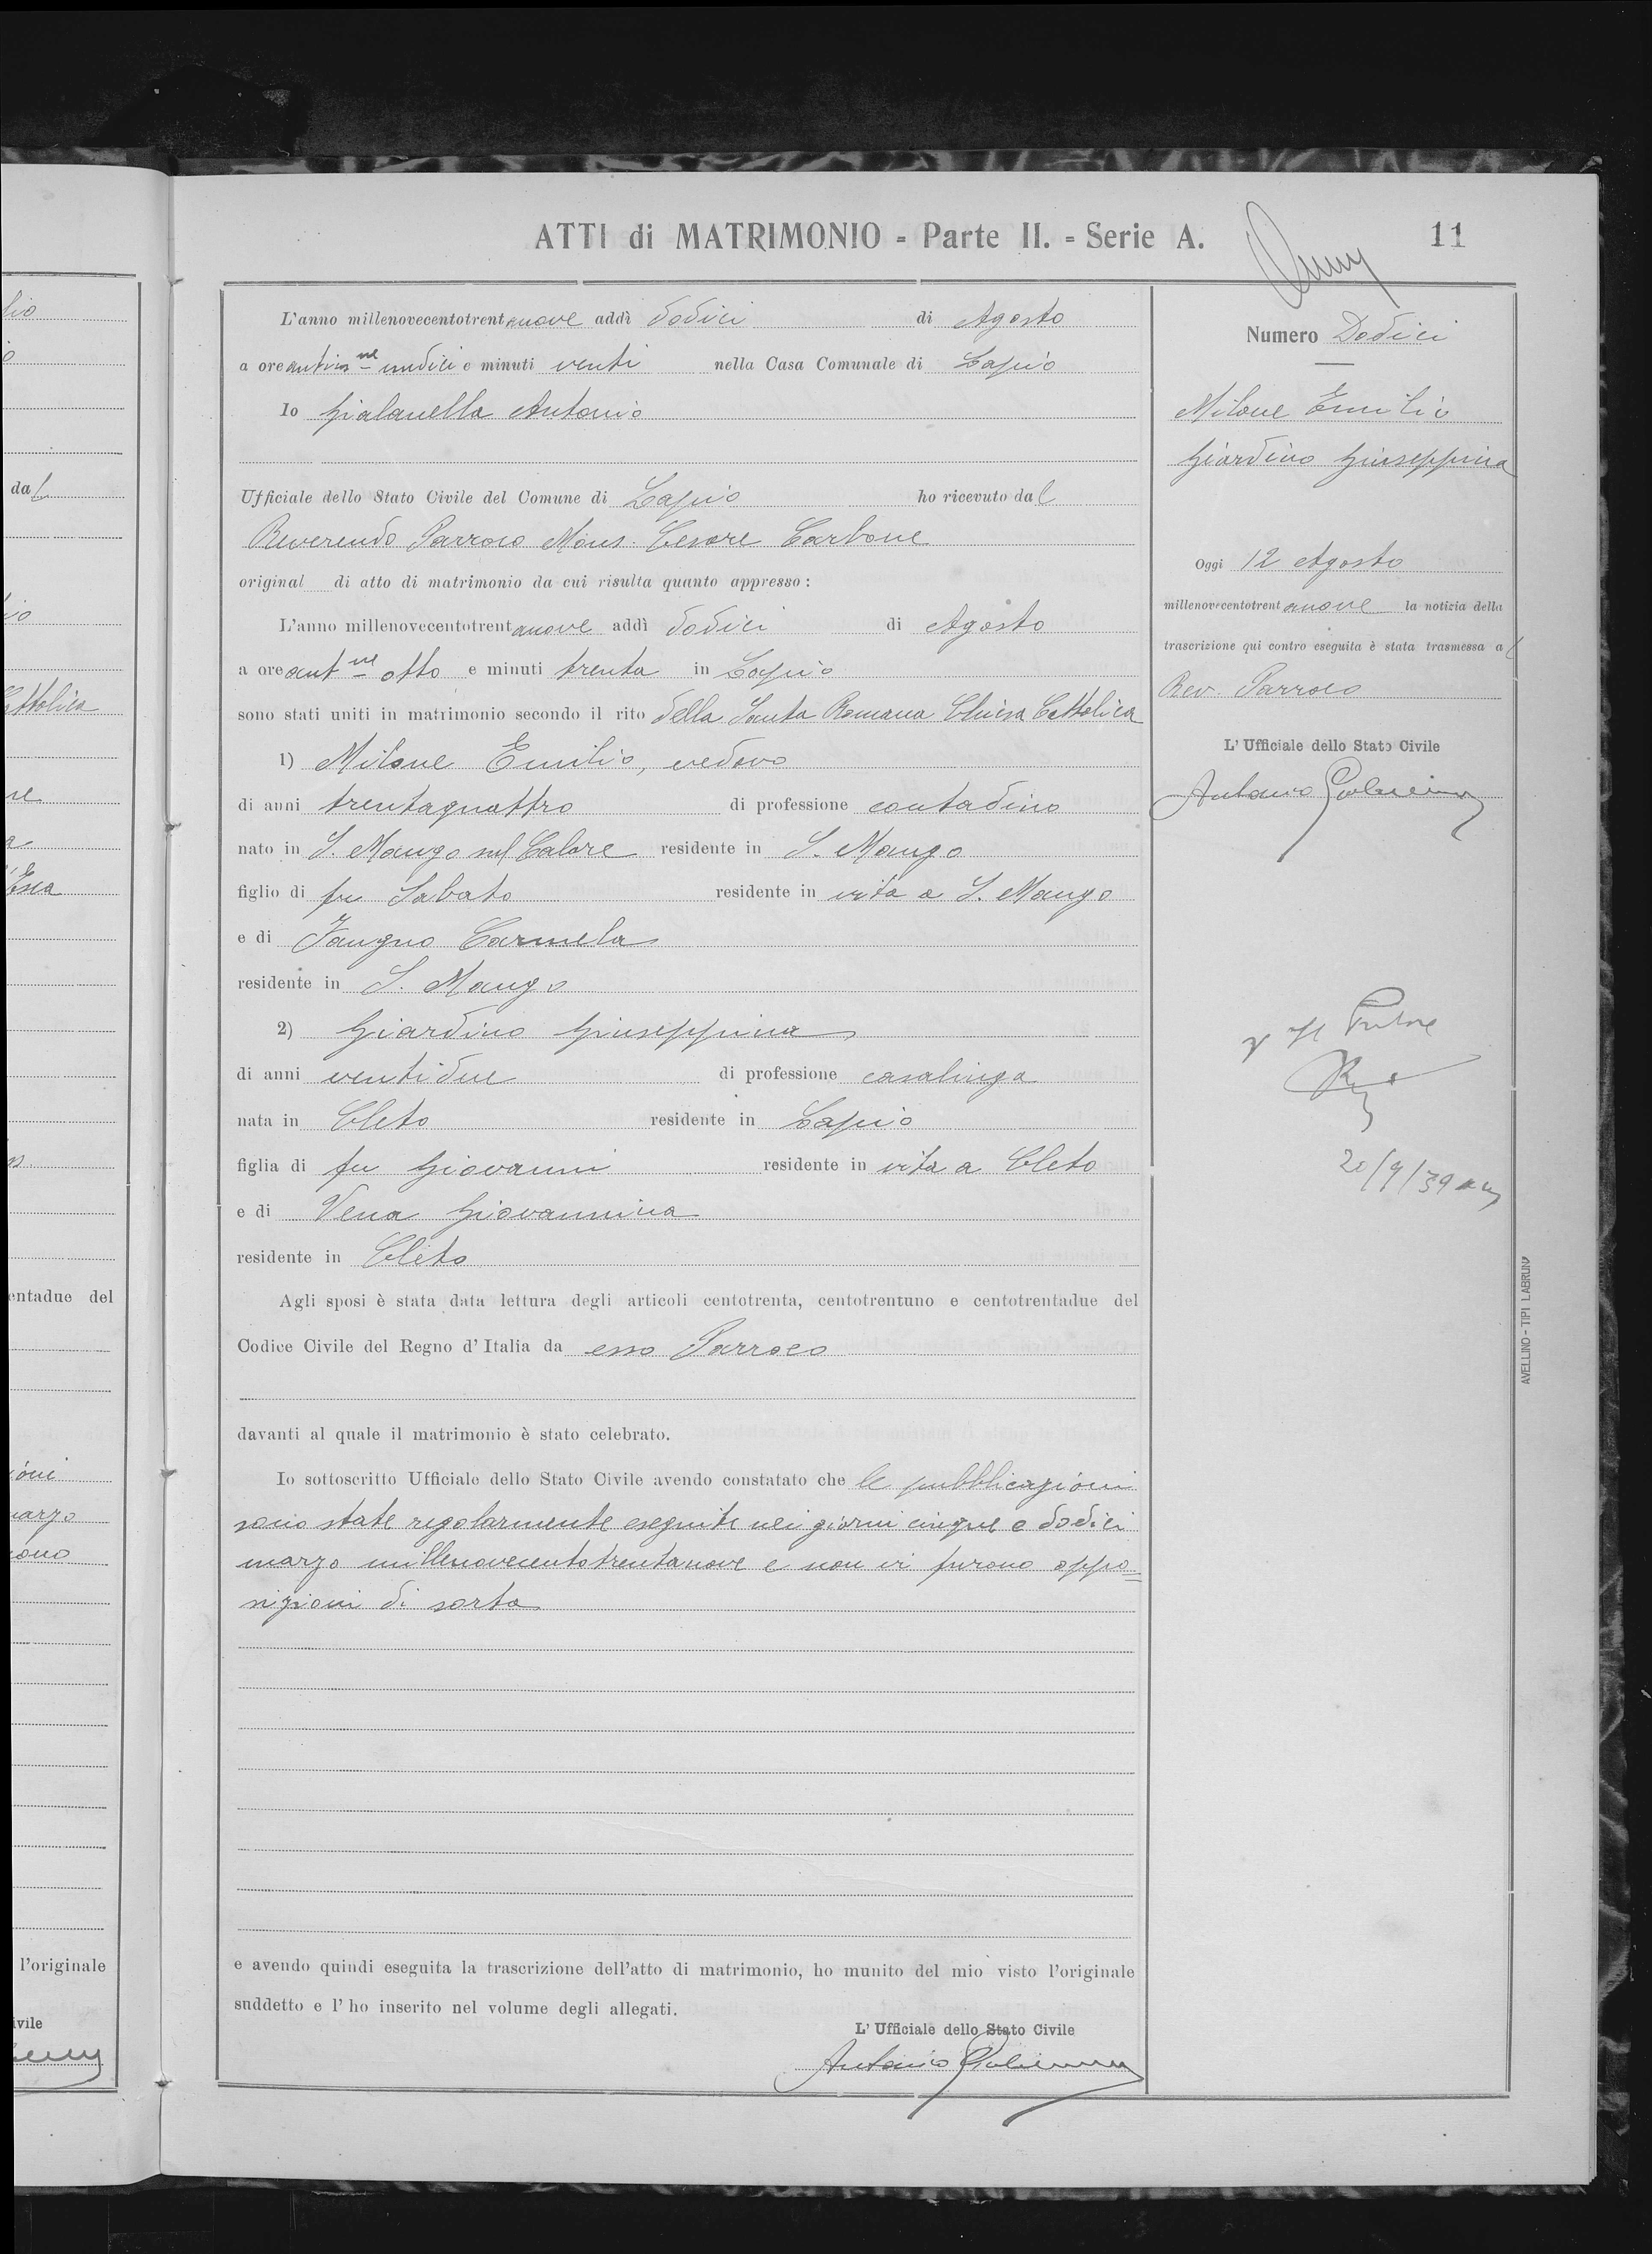 ATTI di MATRIMONIO - Parte II. - Serie A.
11
L'anno millenovecentotrentanove addì dodici di Agosto
a ore antim.ne undici e minuti venti nella Casa Comunale di Lapio
Io Gialanella Antonio
Ufficiale dello Stato Civile del Comune di Lapio ho ricevuto dal
Reverendo Parroco Mons. Cesare Carbone
original di atto di matrimonio da cui risulta quanto appresso:
L'anno millenovecentotrentanove addì dodici di Agosto
a ore ant.ne otto e minuti trenta in Lapio
sono stati uniti in matrimonio secondo il rito della Santa Romana Chiesa Cattolica
1) Milone Emilio, vedovo
di anni trentaquattro di professione contadino
nato in S. Mango sul Calore residente in S. Mango
figlio di fu Sabato residente in vita a S. Mango
e di Iaugno Carmela
residente in S. Mango
2) Giardino Giuseppina
di anni ventidue di professione casalinga
nata in Cleto residente in Lapio
figlia di fu Giovanni residente in vita a Cleto
e di Vena Giovannina
residente in Cleto
Agli sposi è stata data lettura degli articoli centotrenta, centotrentuno e centotrentadue del
Codice Civile del Regno d'Italia da esso Parroco
davanti al quale il matrimonio è stato celebrato.
Io sottoscritto Ufficiale dello Stato Civile avendo constatato che le pubblicazioni
sono state regolarmente eseguite nei giorni cinque e dodici
marzo millenovecentotrentanove e non vi furono oppo=
sizioni di sorta
e avendo quindi eseguita la trascrizione dell'atto di matrimonio, ho munito del mio visto l'originale
suddetto e l'ho inserito nel volume degli allegati.
L'Ufficiale dello Stato Civile
Antonio Gialanella
Numero Dodici
Milone Emilio
Giardino Giuseppina
Oggi 12 Agosto
millenovecentotrentanove la notizia della
trascrizione qui contro eseguita è stata trasmessa al
Rev. Parroco
L'Ufficiale dello Stato Civile
Antonio Gialanella
Il Pretore
20/9/39
AVELLINO - TIPI LABRUNA
dal
entadue del
l'originale
ivile